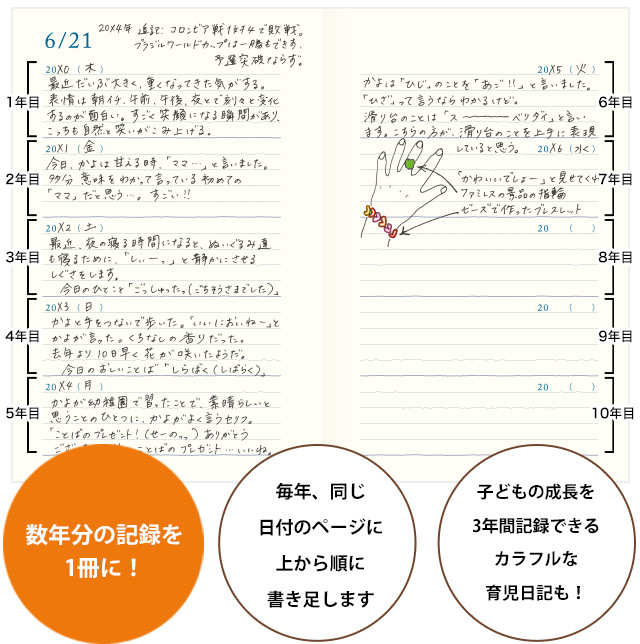 6/21
20X4年 追記:コロンビア戦 1対4で敗戦。
ブラジルワールドカップは一勝もできず、
予選突破ならず。
1年目
20X0(木)
最近だいぶ大きく、重くなってきた気がする。
表情は朝イチ、午前、午後、夜とで刻々と変化
するのが面白い。すごく笑顔になる瞬間があり、
こっちも自然と笑いがこみ上げる。
2年目
20X1(金)
今日、かよは甘える時、「ママ…」と言いました。
多分意味をわかって言っている初めての
「ママ」だと思う…。すごい!!
3年目
20X2(土)
最近、夜の寝る時間になると、ぬいぐるみ達
も寝るために、「しぃーっ」と静かにさせる
しぐさをします。
今日のひとこと「ごっしゅたっ(ごちそうさまでした)」
4年目
20X3(日)
かよと手をつないで歩いた。「いいにおいねー」と
かよが言った。くちなしの香りだった。
去年より10日早く花が咲いたようだ。
今日のおしいことば「しらばく(しばらく)」
5年目
20X4(月)
かよが幼稚園で習ったことで、素晴らしいと
思うことのひとつに、かよがよく言うセリフ。
「ことばのプレゼント!(せーのっっ)ありがとう
ことばのプレゼント…いいね。
6年目
20X5(火)
かよは「ひじ」のことを「あご!!」と言いました。
「ひざ」って言うならわかるけど。
滑り台のことは「スーーーベリダイ」と言い
ます。こちらの方が、滑り台のことを上手に表現
していると思う。
20X6(水)
「かわいいでしょー」と見せてくる
ファミレスの景品の指輪
ビーズで作ったブレスレット
7年目
8年目
20 ( )
9年目
20 ( )
10年目
20 ( )
数年分の記録を
1冊に!
毎年、同じ
日付のページに
上から順に
書き足します
子どもの成長を
3年間記録できる
カラフルな
育児日記も!